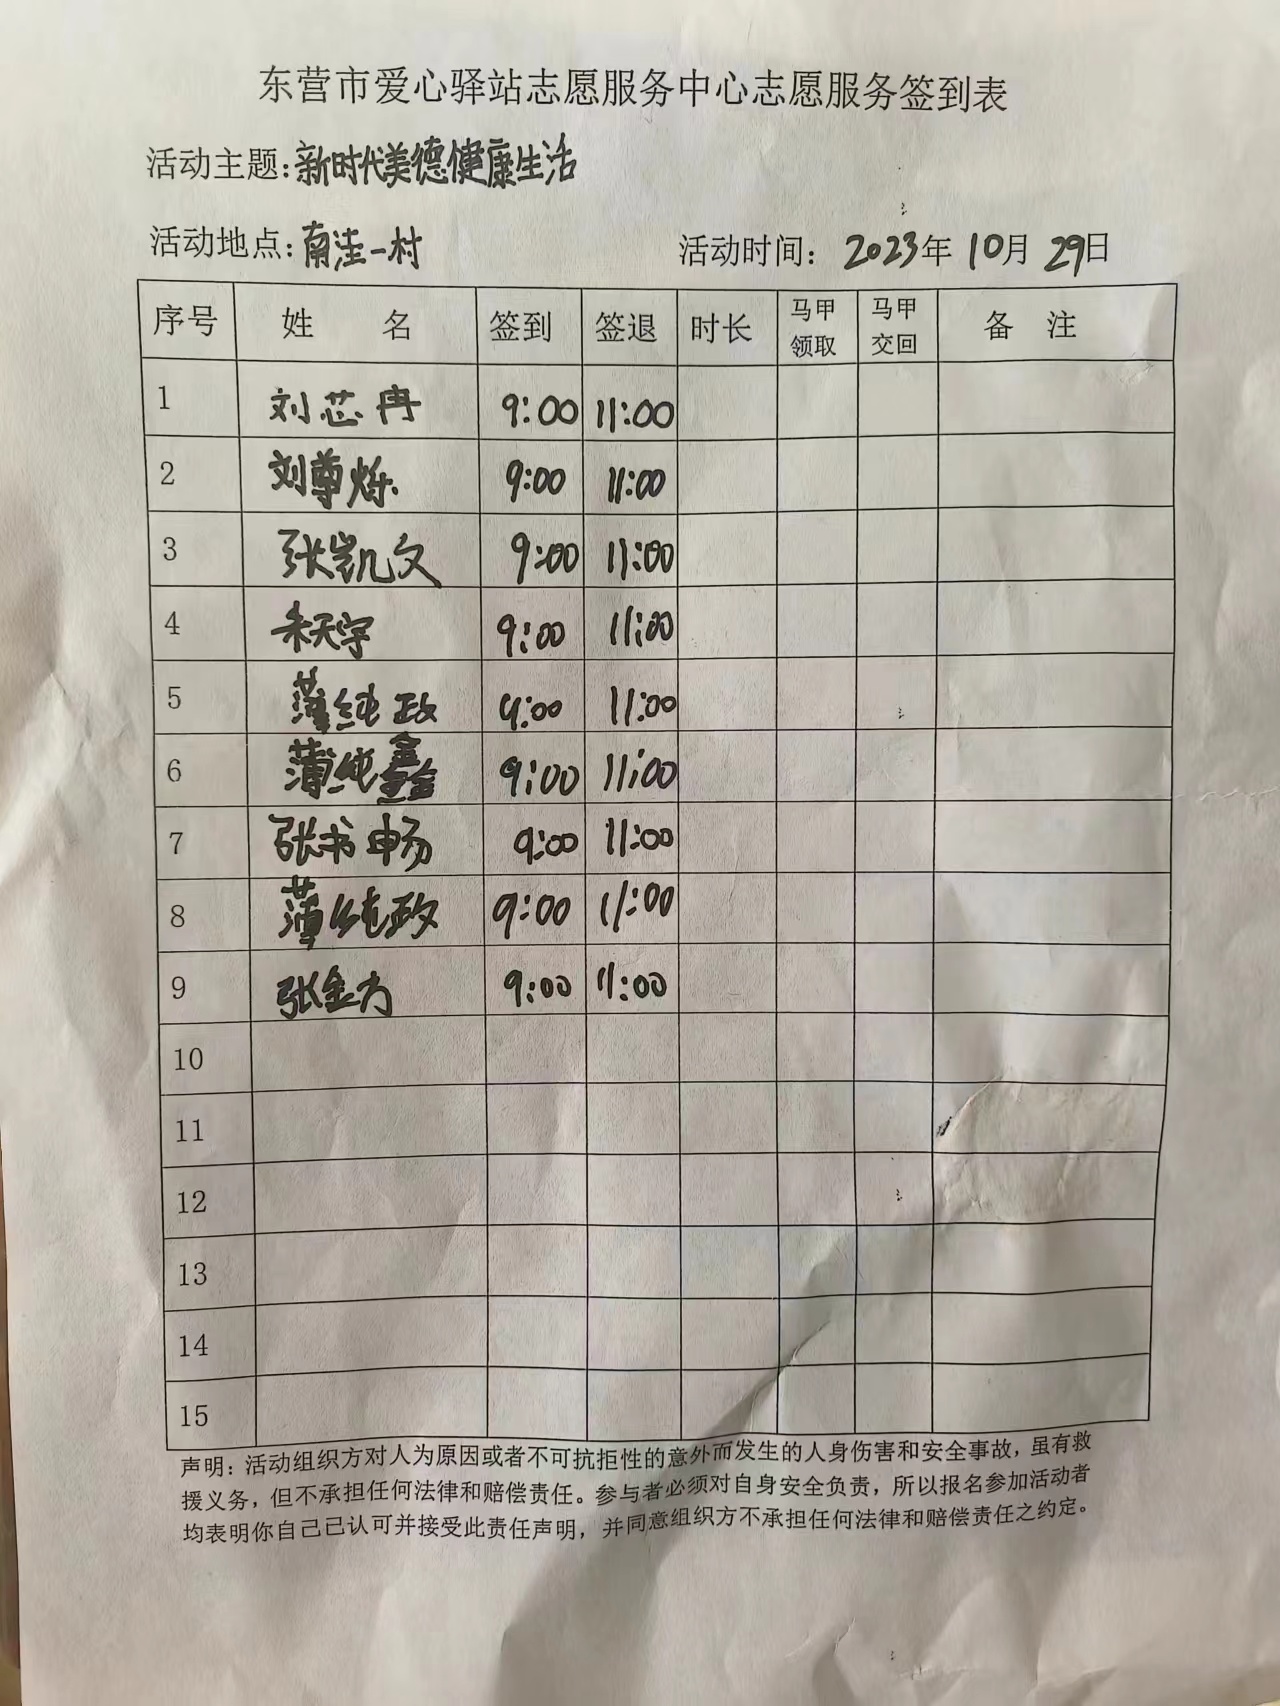 东营市爱心驿站志愿服务中心志愿服务签到表
活动主题:新时代美德健康生活
活动地点:南洼一村 活动时间: 2023年 10月 29日
序号 姓 名 签到 签退 时长 马甲领取 马甲交回 备 注
1 刘芯冉 9:00 11:00
2 刘尊烁 9:00 11:00
3 张凯文 9:00 11:00
4 朱天宇 9:00 11:00
5 薄纯政 9:00 11:00
6 薄纯鑫 9:00 11:00
7 张书畅 9:00 11:00
8 薄纯政 9:00 11:00
9 张金方 9:00 11:00
10
11
12
13
14
15
声明：活动组织方对人为原因或者不可抗拒性的意外而发生的人身伤害和安全事故，虽有救
援义务，但不承担任何法律和赔偿责任。参与者必须对自身安全负责，所以报名参加活动者
均表明你自己已认可并接受此责任声明，并同意组织方不承担任何法律和赔偿责任之约定。